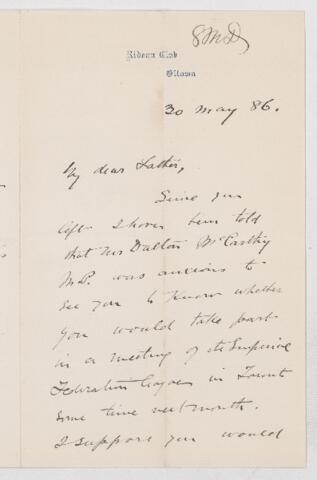 Rideau Club
Ottawa
30 May 86.
My dear Father,
Since you
left I have been told
that Mr Dalton McCarthy
M.P. was anxious to
see you to know whether
you would take part
in a meeting of the Imperial
Federation League in Toronto
some time next month.
I suppose you would